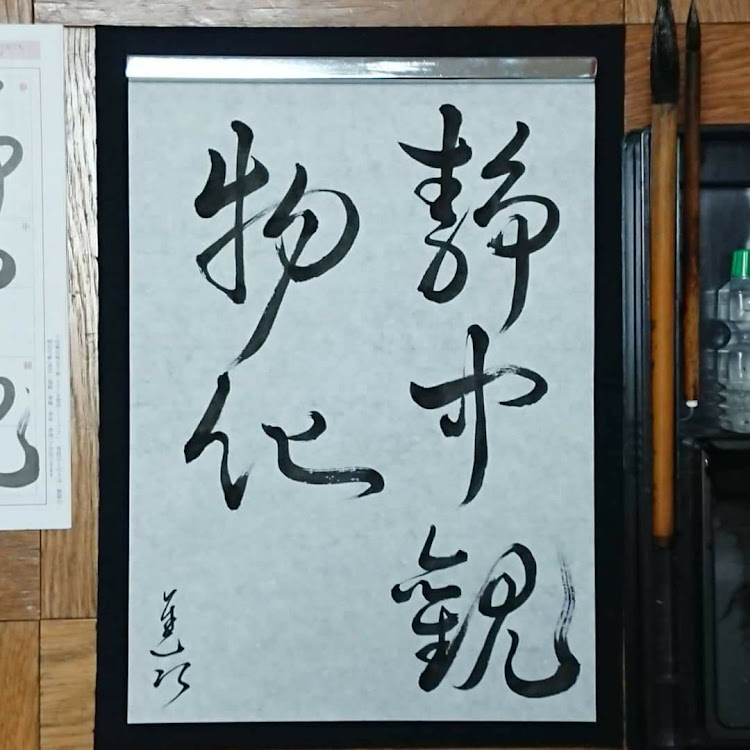 静中観
物化